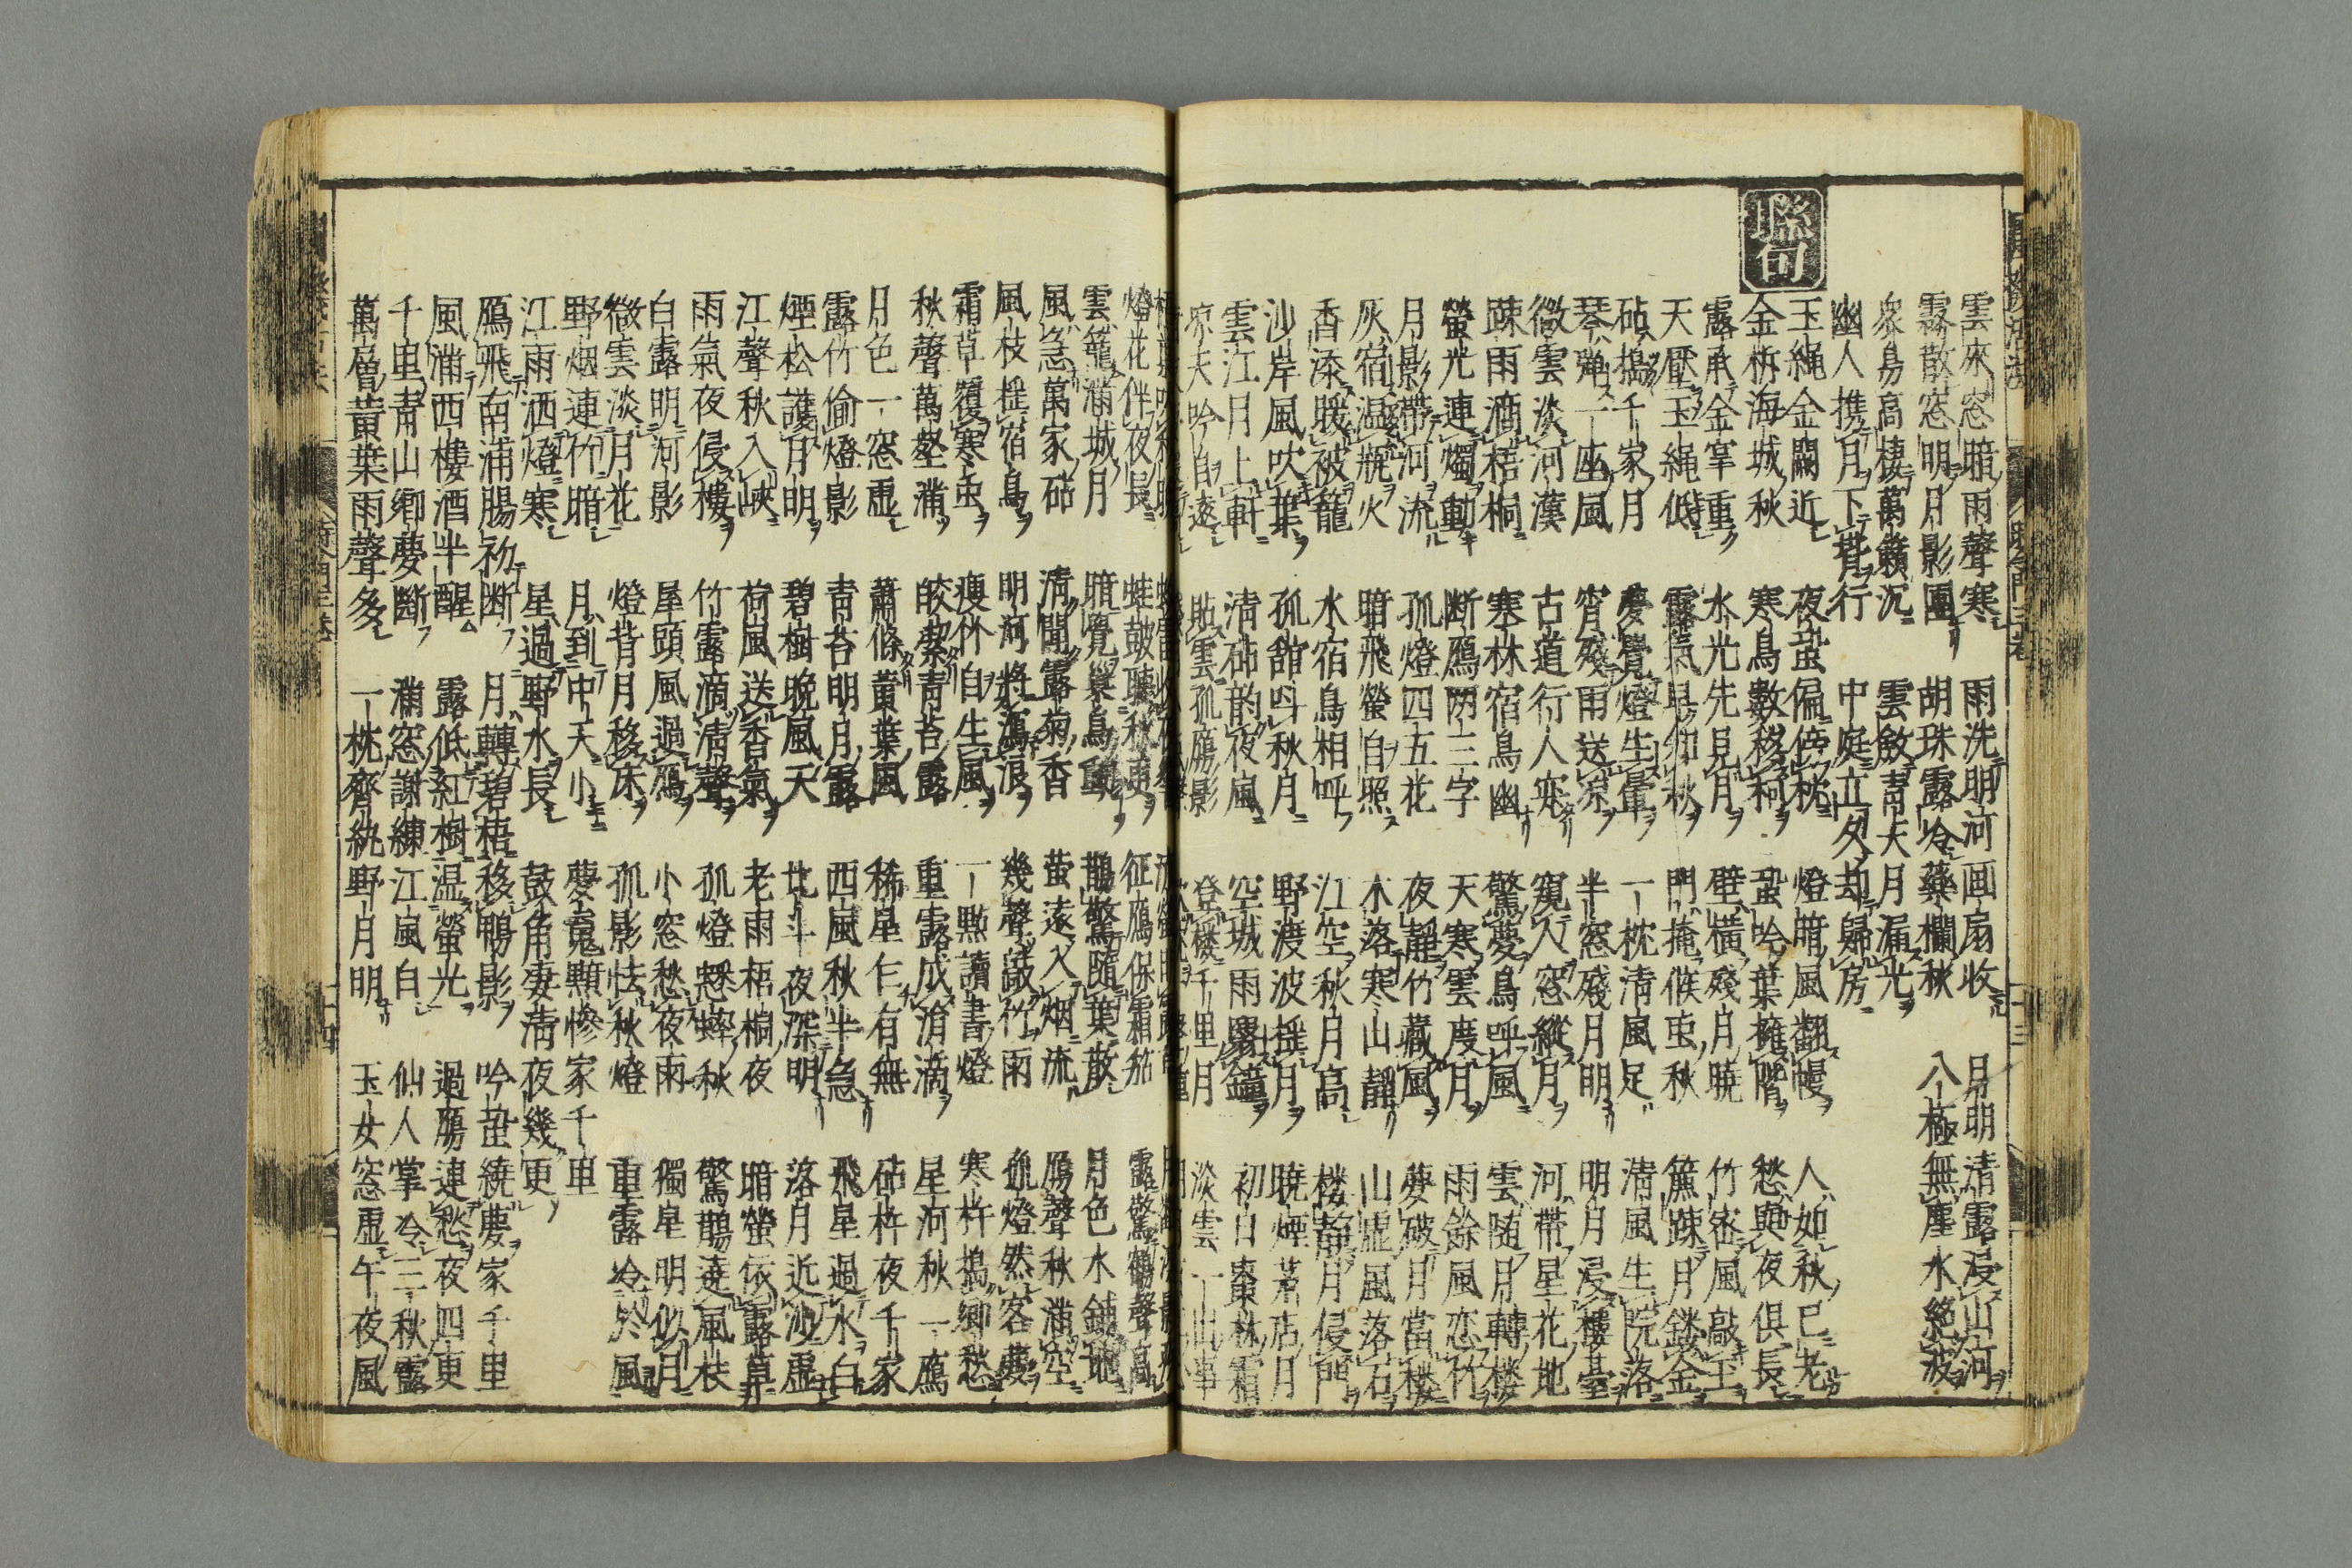 雲來窓暗雨聲寒 雨洗明河画扇收 月明清露浸山河
霧散窓明月影團 胡珠露冷藥欄秋 八極無塵水絶波
衆易高棲萬籟沉 雲斂青天月漏光
幽人携月下堦行 中庭立久却歸房
玉繩金闕近 夜蛩偏傍枕 燈暗風翻幔 人如秋已老
聯句
金柝海城秋 寒鳥數移柯 蛩吟葉擁階 愁與夜俱長
露承金掌重 水光先見月 壁橫殘月曉 竹密風敲玉
天壓玉繩低 露氣易仰秋 門掩候虫秋 簾踈月鏤金
砧搗千家月 夢覺燈生暈 一枕清風足 清風生院落
琴彈一座風 宵殘雨送凉 半窓殘月明 明月浸樓臺
微雲淡河漢 古道行人 窺人窓縱月 河帶星花地
踈雨滴梧桐 寒林宿鳥幽 驚夢鳥呼風 雲随月轉楼
螢光連燭動 断鴈両三字 天寒雲度月 雨餘風恋竹
月影帶河流 孤燈四五花 夜靜竹藏風 夢破月當楼
灰宿温瓶火 暗飛螢自照 木落寒山靜 山虚風落石
香添暖被籠 水宿鳥相呼 江空秋月高 楼静月侵門
沙岸風吹葉 孤舘叫秋月 野渡波揺月 曉煙茗店月
雲江月上軒 清砧韵夜嵐 空城雨罷鐘 初日棗林霜
凉天吟自遠 貼雲孤鴈影 登楼千里月 淡雲一山事
燈花伴夜長 蛙鼓聽秋更 征鴈保霜笳 露驚鶴聲高
雲籠滿城月 暗覺巢鳥動 鵲驚隨葉散 月色水鋪地
風急萬家砧 清聞露菊香 茧遠入烟流 鴈聲秋滿空
風枝揺宿鳥 明河將瀉浪 幾聲敲竹雨 孤燈然客夢
霜草覆寒虫 痩竹自生風 一點讀書燈 寒杵搗鄉愁
秋聲萬壑滿 皎潔青苔露 重露成涓滴 星河秋一鴈
月色一窓虚 蕭條黄葉風 稀星乍有無 砧杵夜千家
露竹偷燈影 青苔明月露 西嵐秋半急 飛星過水白
煙松護月明 碧樹晩風天 北斗夜深明 落月近沙虚
江聲秋入峽 荷風送香氣 老雨梧桐夜 暗螢依露草
雨氣夜侵樓 竹露滴清聲 孤燈蟋蟀秋 驚鵲遶風枝
白露明河影 屋頭風過鴈 小窓愁夜雨 獨星明似月
微雲淡月花 燈背月移床 孤影怯秋燈 重露冷於風
野烟連竹暗 月到中天小 夢寛顯惨家千里
江雨洒燈寒 星過野水長 鼓角凄清夜幾更
鴈飛南浦腸初断 月轉碧梧移鵲影 吟蛩繞夢家千里
風滿西樓酒半醒 露低紅樹温螢光 過鴈連愁夜四更
千里青山鄉夢斷 滿窓謝練江嵐白 仙人掌冷三秋露
萬層黄葉雨聲多 一枕齊紈野月明 玉女窓虚午夜風